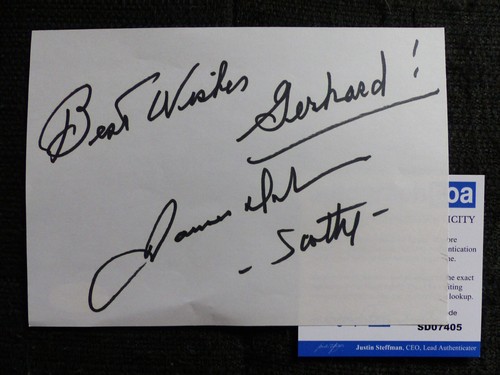 Best Wishes
Gerhard!
James
- Scotty -
oa
ICITY
ore
entication
ne.
the exact
iting
lookup.
de
SD07405
Justin Steffman, CEO, Lead Authenticator